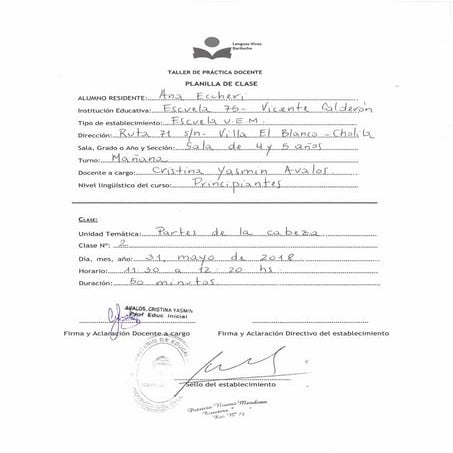 Lenguas Vivas
Bariloche
TALLER DE PRÁCTICA DOCENTE
PLANILLA DE CLASE
ALUMNO RESIDENTE: Ana Eccheri
Institución Educativa: Escuela 75- Vicente Calderón
Tipo de establecimiento: Escuela U.E.M.
Dirección: Ruta 71 s/n- Villa El Blanco - Cholila
Sala, Grado o Año y Sección: Sala de 4 y 5 años
Turno: Mañana
Docente a cargo: Cristina Yasmin Avalos
Nivel lingüístico del curso: Principiantes
CLASE:
Unidad Temática: Partes de la cabeza
Clase N°: 2
Día, mes, año: 31, mayo de 2018
Horario: 11:30 a 12:20 hs
Duración: 50 minutos
AVALOS, CRISTINA YASMIN
Prof Educ Inicial
Firma y Aclaración Docente a cargo Firma y Aclaración Directivo del establecimiento
Sello del establecimiento